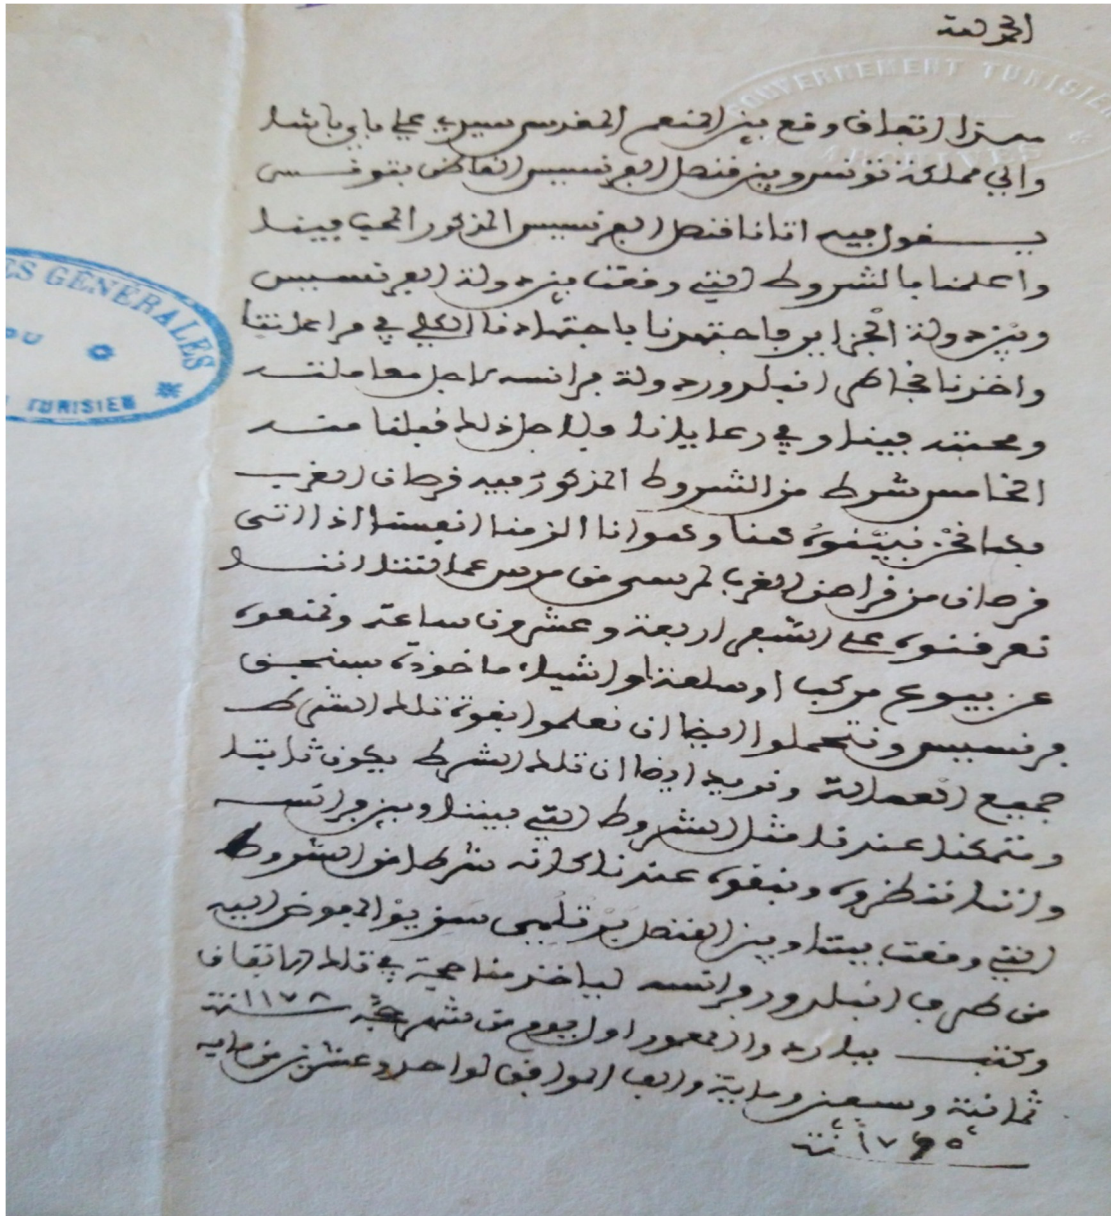 الحمد لله
GOUVERNEMENT TUNISIEN
ARCHIVES
هذا اتفاق وقع بين المنعم المقدس سيدي علي باي باشا
والي مملكة تونس وبين قنصل الفرنسيس القاطن بتونس
يقول فيه اتانا قنصل الفرنسيس المذكور المحب فينا
واعلمنا بالشروط التي وقعت بين دولة الفرنسيس
وبين دولة الجزاير فاجتهدنا باجتهادنا الكلي في مراعاتنا
واخذنا بخاطر انبلرور دولة فرانسه لاجل معاملته
ومحبته فينا وفي رعايانا ولاجل ذلك قبلنا منه
الخامس شرط من الشروط المذكور فيه قرصان الغرب
فها نحن نبيّنوه هنا وهو انا الزمنا انفسنا اذا اتى
قرصان من قراصن الغرب لمرسى من مرسى عمالتنا اننا
نعرفنوه على السفر اربعة وعشرون ساعة ونمنعوه
عن بيوع مركب او سلعة او اشياء ماخوذة بسنجق
فرنسيس ونتحملوا ايضا ان نعلموا بقوة تلك الشرط
جميع العمالة ونريد ايضا ان تلك الشرط يكون ثابتا
ومتمكنا عندنا مثل الشروط التي بيننا وبين فرانسه
واننا ننظروه ونبقوه عندنا كانه شرطا من الشروط
التي وقعت بيننا وبين القنصل برتلمي سزيو المفوض اليه
من طرف انبلرور فرانسه لياخذ منا حجة في تلك الاتفاق
وكتب بباردو المعمور اول يوم من شهر حجة سنة ١١٧٨
ثمانية وسبعين وماية والف الموافق لواحد وعشرين من مايه
سنة ١٧٦٥
ES GENERALES
DU
TUNISIEN